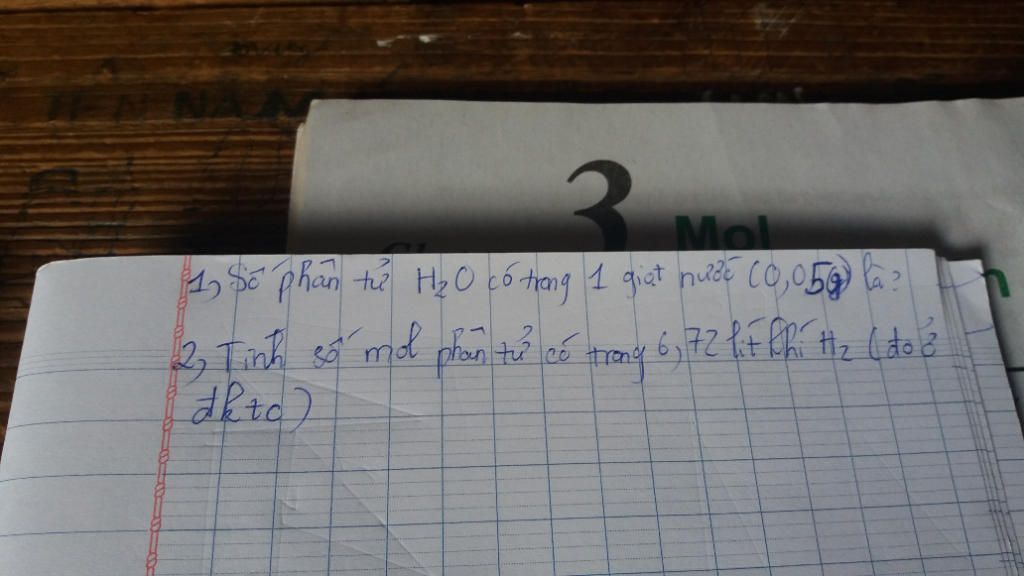 3 Mol
1, Số phân tử H₂O có trong 1 giọt nước (0,05g) là?
2, Tính số mol phân tử có trong 6,72 lít khí H₂ (đo ở
đktc)